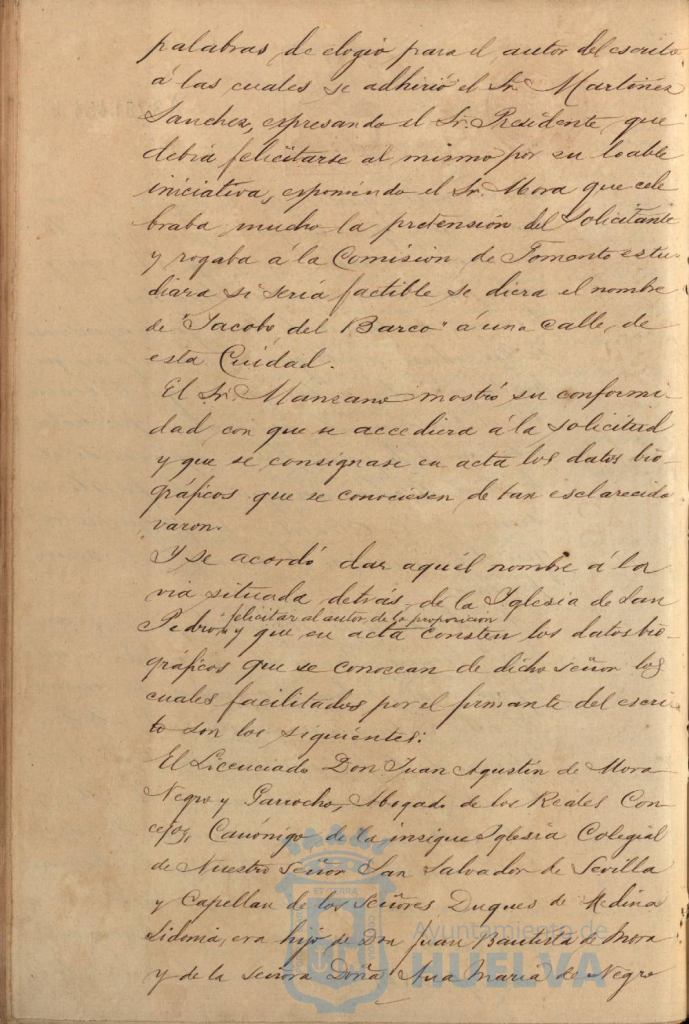 palabras de elogio para el autor del escrito
á las cuales se adhirió el Sr. Martinez
Sanchez, expresando el Sr. Presidente, que
debia felicitarse al mismo por su loable
iniciativa, exponiendo el Sr. Mora que cele
braba mucho la pretensión del Solicitante
y rogaba á la Comisión de Fomento estu-
diara si sería factible se diera el nombre
de "Jacobo del Barco" á una calle de
esta Cuidad.
El Sr. Manzano mostró su conformi-
dad con que se accediera á la solicitud
y que se consignase en acta los datos bio-
gráficos que se conociesen de tan esclarecido
varon.
Y se acordó dar aquél nombre á la
via situada detrás de la Iglesia de San
felicitar al autor de la proposición
Pedro, y que en acta consten los datos bio-
gráficos que se conozcan de dicho señor los
cuales facilitados por el firmante del escri-
to son los siguientes:
El Licenciado Don Juan Agustín de Mora
Negro y Garrocho, Abogado de los Reales Con
cejos, Canónigo de la insigne Iglesia Colegial
de Nuestro Señor San Salvador de Sevilla
y Capellan de los Señores Duques de Medina
Sidonia, era hijo de Don Juan Bautista de Mora
y de la Señora Doña Ana Maria de Negro
Ayuntamiento de
HUELVA